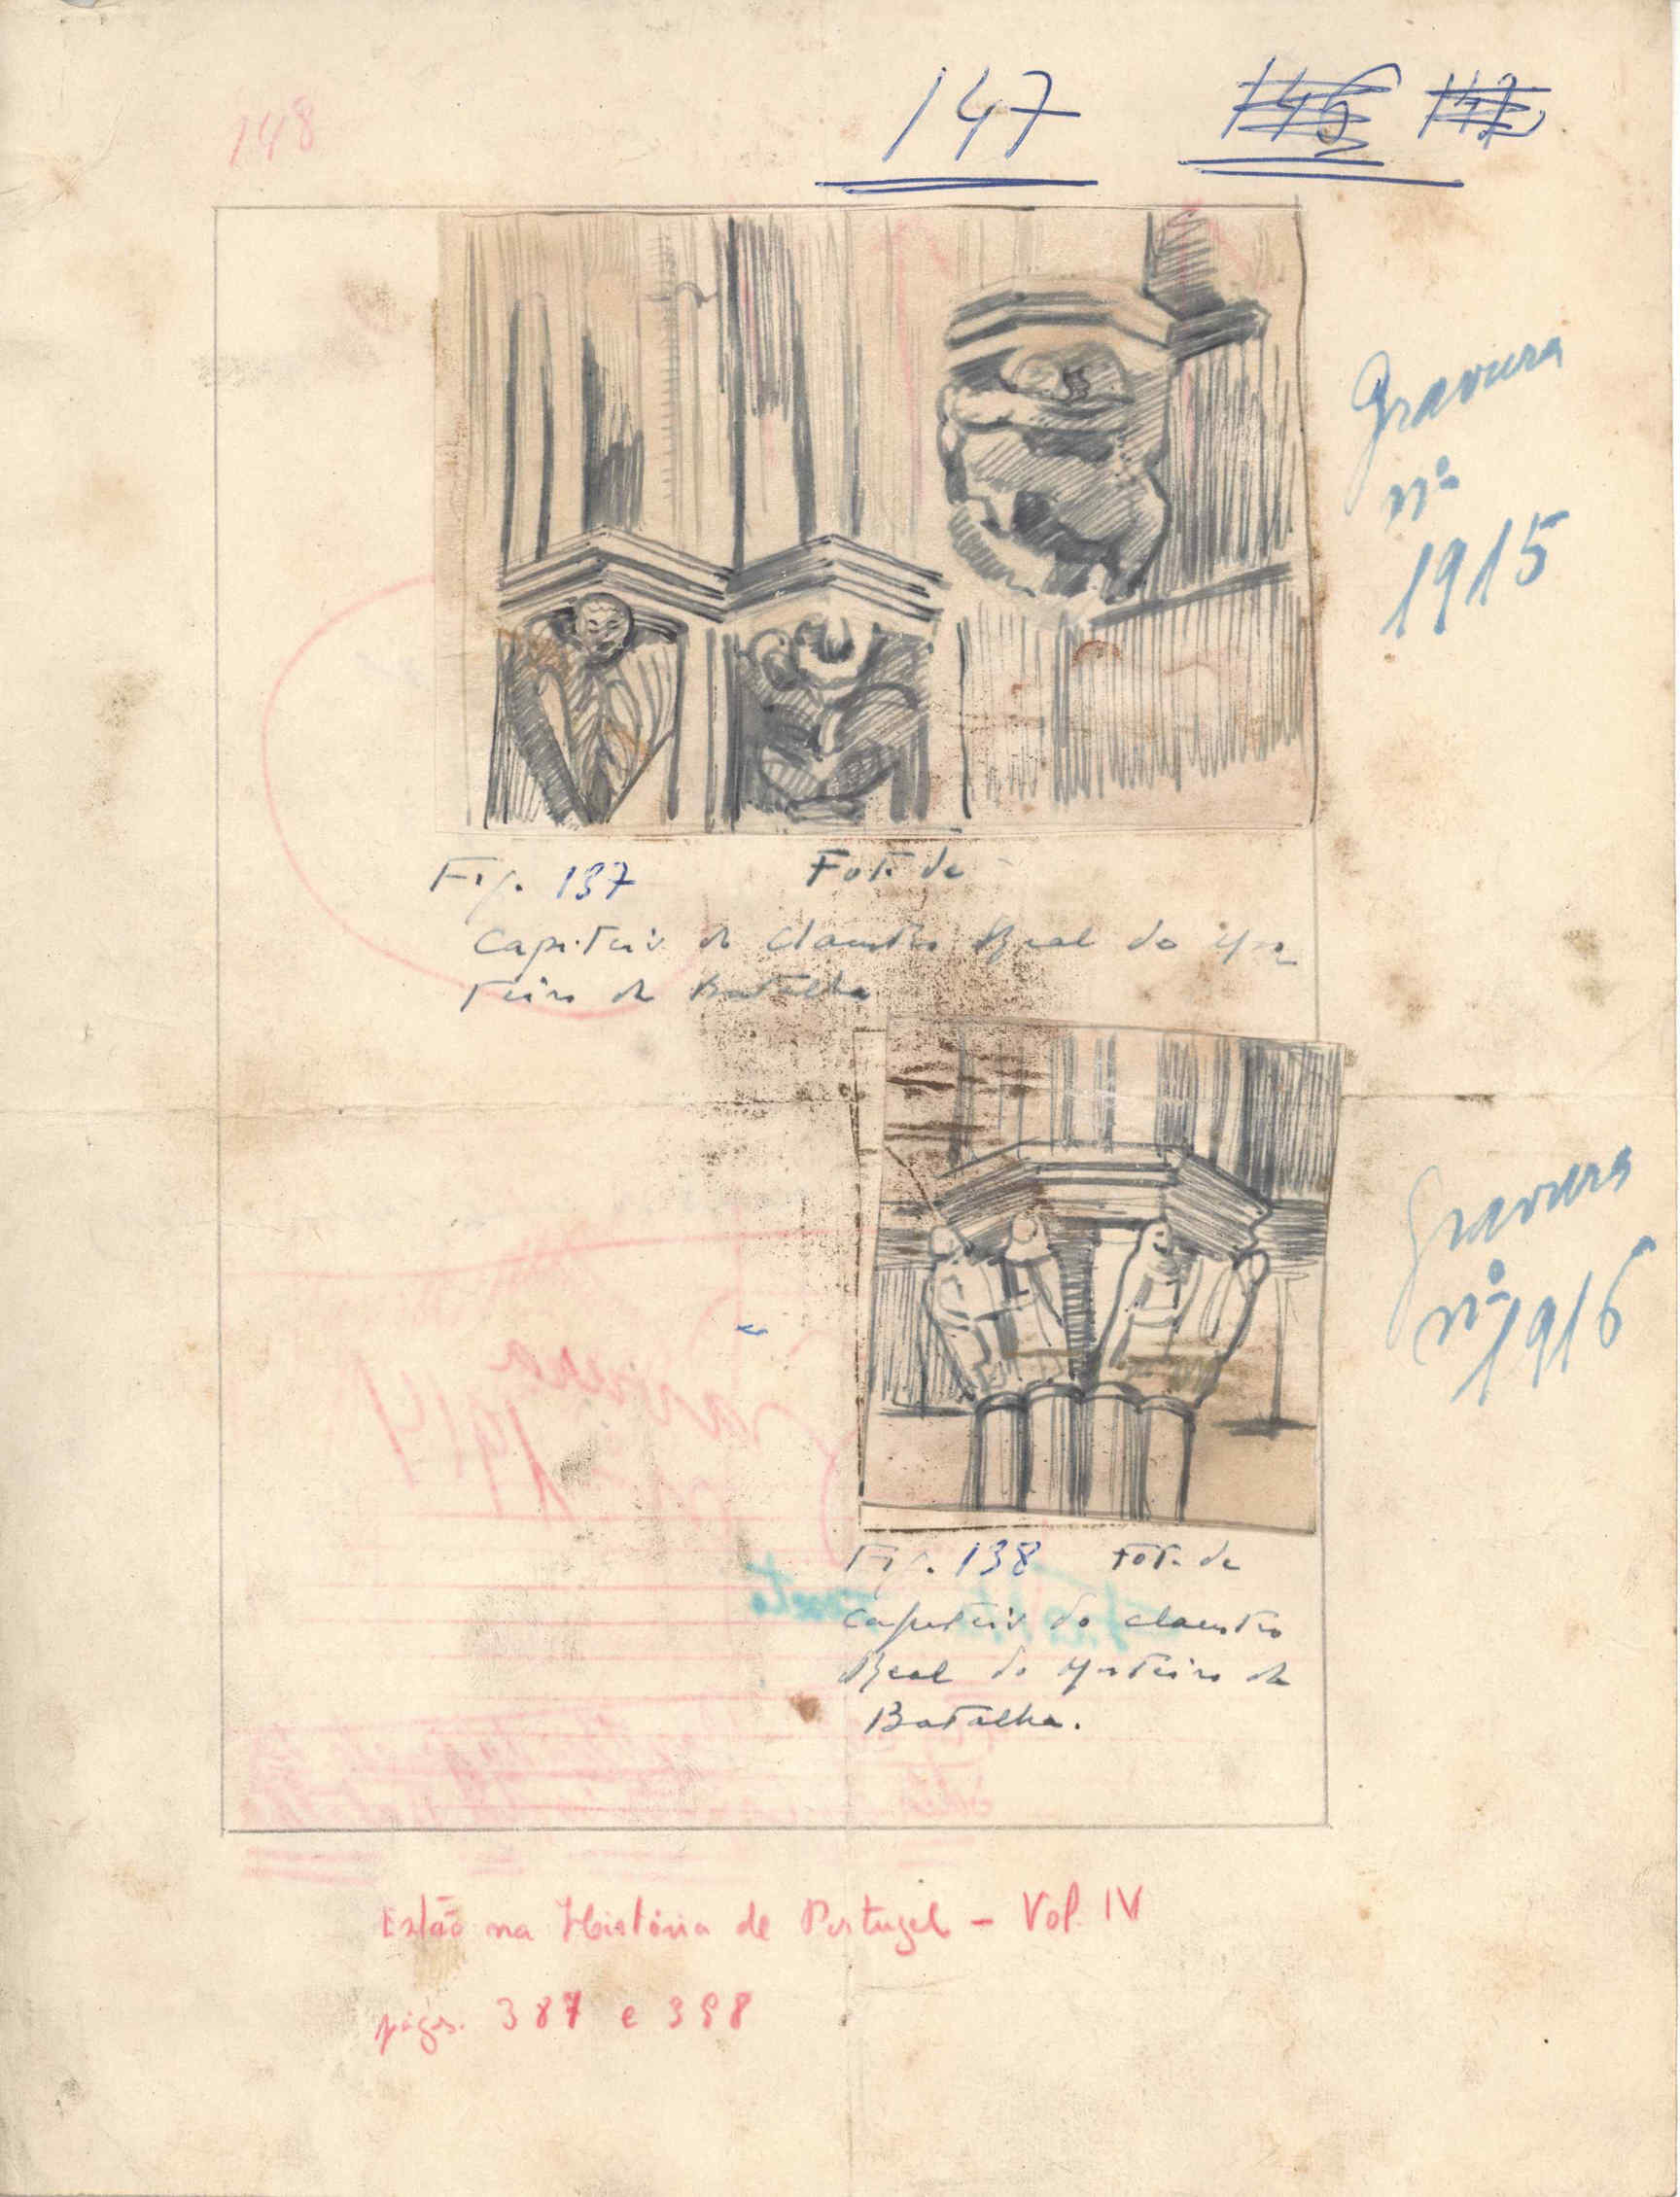 148
147
Gravura
nº
1915
Fig. 137 Fot. de
Capiteis do Claustro Real do Mos
teiro da Batalha
Gravura
nº 1916
Fig. 138 Fot. de
Capiteis do claustro
Real do Mosteiro da
Batalha.
Estão na História de Portugal - Vol. IV
págs. 387 e 398